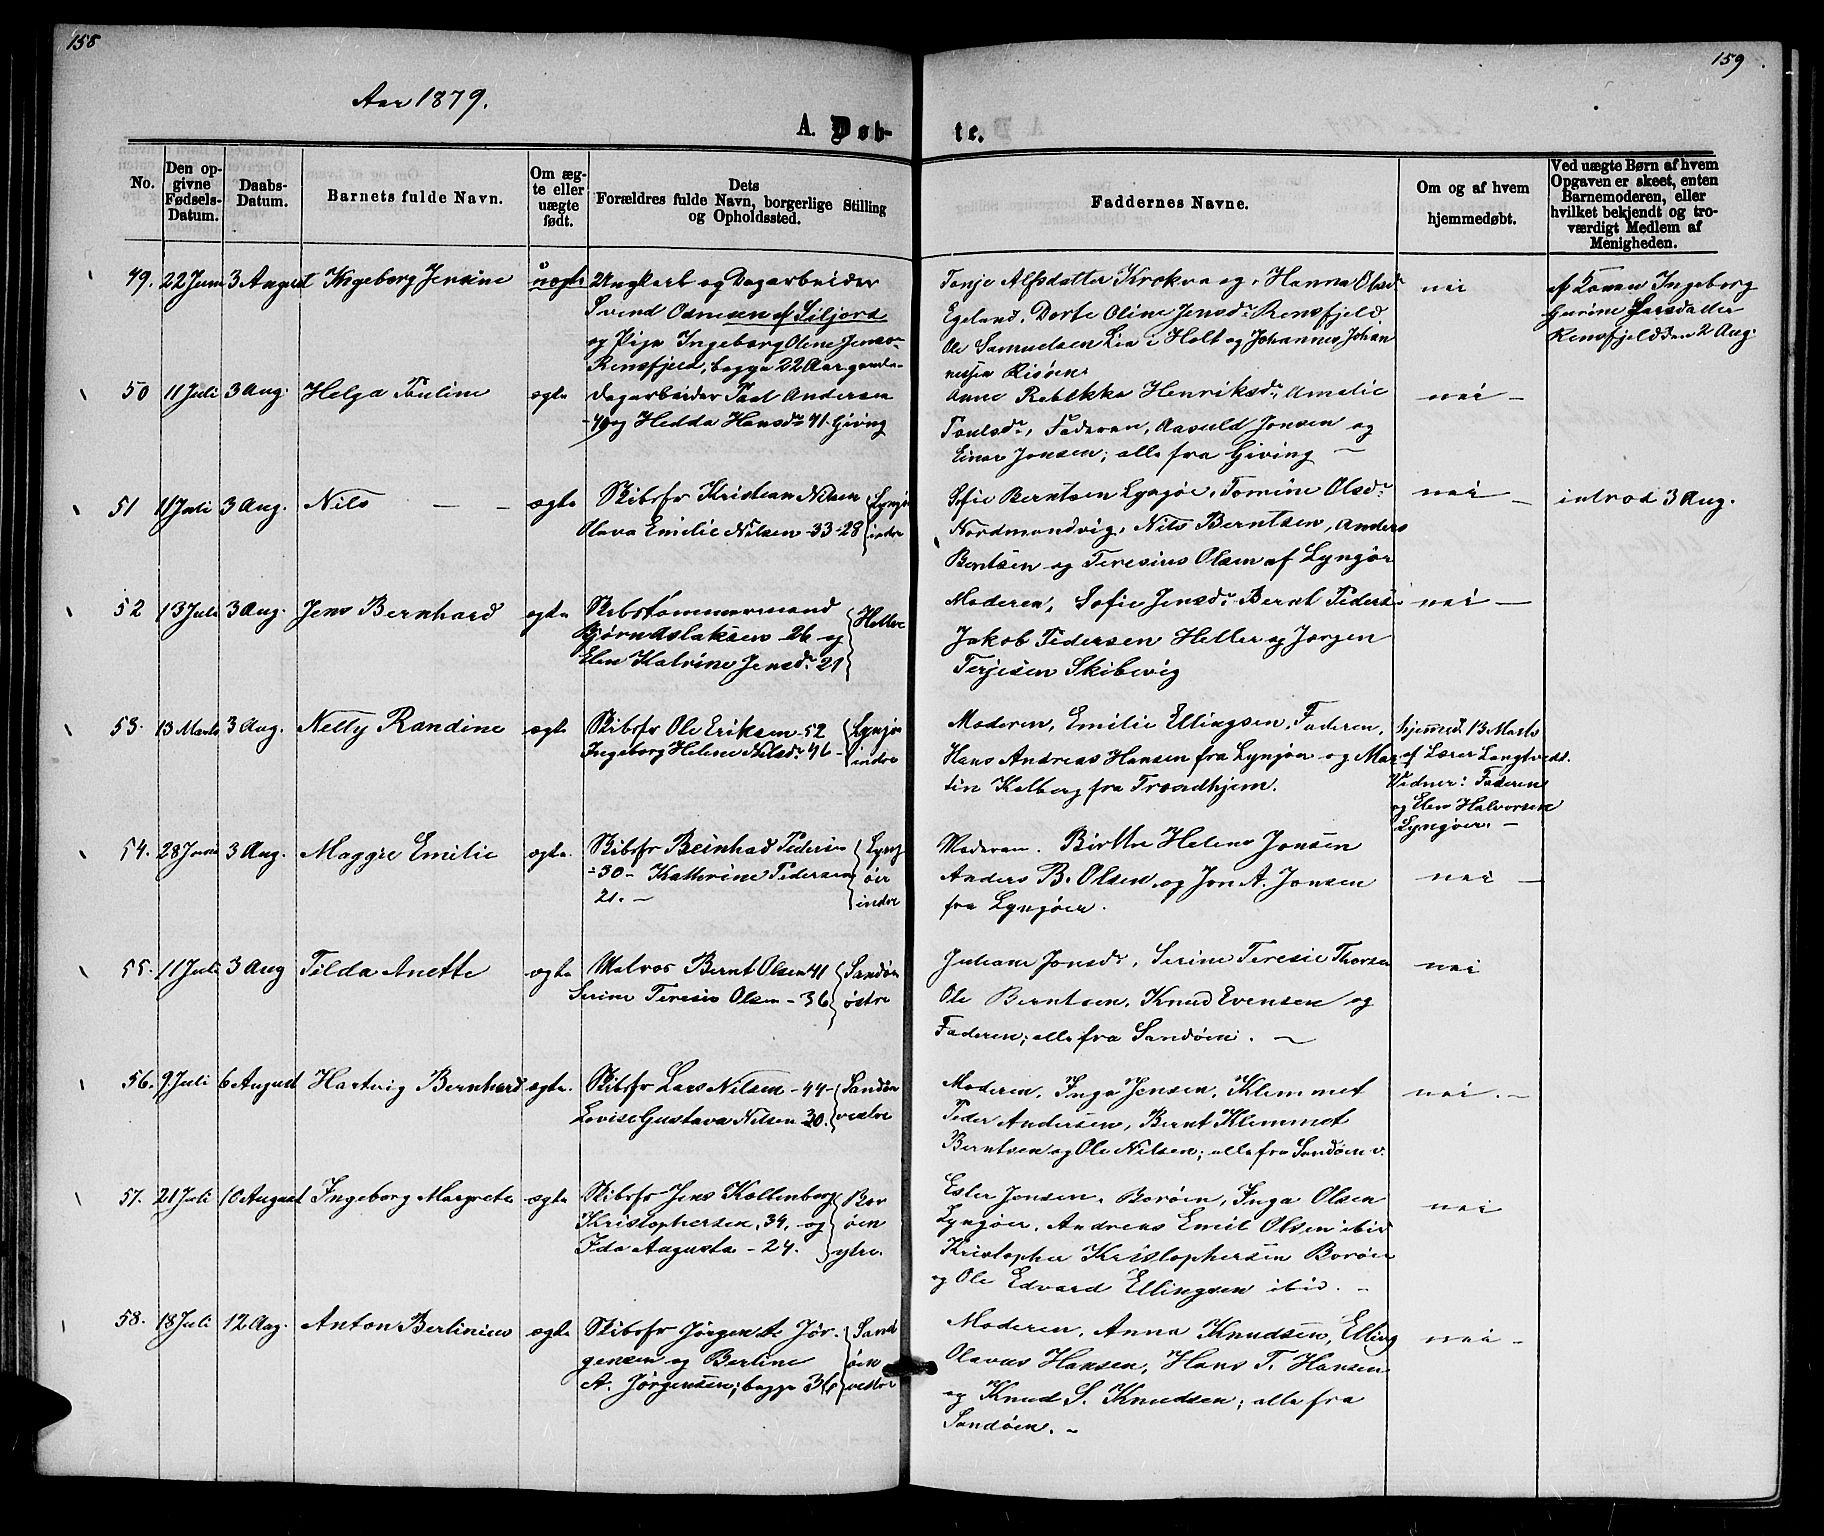 158
Aar 1879.
A. Døb-
No.
Den op-
givne
Fødsels-
Datum.
Daabs-
Datum.
Barnets fulde Navn.
Om æg-
te eller
uægte
født.
Dets
Forældres fulde Navn, borgerlige Stilling
og Opholdssted.
49. 22 Juni 3 August Ingeborg Jensine uægte Ungkarl og Dagarbeider
Svend Osmesen af Siljord
og Pige Ingeborg Oline Jens
Rensfjeld, begge 22 Aar gamle
50 11 Juli 3 Aug. Helga Pauline ægte Dagarbeider Paal Andersen
-40 og Hedda Hansdr 41. Giving
51 11 Juli 3 Aug. Nils — — ægte Skibsfr Kristian Nilsen Lyngør
Olava Emilie Nilsen -33-28 indre
52 13 Juli 3 Aug. Jens Bernhard ægte Skibstømmermand Helle
Bjørn Aslaksen 26 og
Elen Katrine Jensdr. 21
53. 13 Marts 3 Aug. Nelly Randine ægte Skibsfr Ole Eriksen - 52 Lyngør
Ingeborg Helene Nilsdr. 46 - indre
54. 28 Juni 3 Aug. Maggie Emilie ægte. Skibsfr Beinhad Pedersen Lyng
-30- Kathrine Pedersen øer
21. — indre
55. 11 Juli 3 Aug Tilda Anette ægte Matros Bernt Olsen 41 Sandøen
Serine Teresie Olsen - 36 østre
56. 9 Juli 6 August Hartvig Bernhard ægte. Skibsfr Lars Nilsen - 44 - Sandøen
Lovise Gustava Nilsen 30. vestre
57. 21 Juli 10 August Ingeborg Margrete ægte Skibsfr Jens Kallenborg Bor
Kristophersen, 34, og øen
Ida Augusta - 24. ytre.
58. 18 Juli 12 Aug. Anton Berlinius ægte Skibsfr Jørgen A. Jør- Sand
gensen og Berline øen
A. Jørgensen; begge 36 vestre
159
te.
Faddernes Navne.
Om og af hvem
hjemmedøbt.
Ved uægte Børn af hvem
Opgaven er skeet, enten
Barnemoderen, eller
hvilket bekjendt og tro-
værdigt Medlem af
Menigheden.
Tonje Alfsdatter Krokva og, Hanna Olsdr nei af Konen Ingeborg
Egeland. Dorte Oline Jensdr Rensfjeld Gurine Larsdatter
Ole Samuelsen Lia i Holt og Johannes Johan Rensfjeld den 2 Aug.
nessen Risøen.
Anne Rebekka Henriksdr, Amalie nei -
Paulsdr, Faderen, Aasuld Jonsen og
Einar Jonsen; alle fra Giving —
Sofie Berntsen Lyngør, Tomine Olsdr nei — introd 3 Aug.
Nordmandvig, Nils Berntsen, Anders
Berntsen og Teresius Olsen af Lyngør
Moderen, Sofie Jensdr. Bernt Peders. nei —
Jakob Pedersen Helle og Jørgen
Terjesen Skibevig
Moderen, Emilie Ellingsen, Faderen, hjemmed. 13 Marts
Hans Andreas Hansen fra Lyngøer og Mar- af Lærer Langtvedt.
tin Kalberg fra Trondhjem. Vidner: Faderen
og Elen Halvorsen
Lyngøer. —
Moderen. Birthe Helene Jonsen
Anders B. Olsen og Jon A. Jonsen nei —
fra Lyngøer.
Juliane Jonsdr, Serine Teresie Thorsen nei
Ole Berntsen, Knud Evensen og
Faderen; alle fra Sandøen. —
Moderen, Inga Jensen, Klemmet nei. —
Peder Andersen, Bernt Klemmet
Berntsen og Ole Nilsen; alle fra Sandøen v.
Ester Jonsen, Borøen, Inga Olsen nei
Lyngøer, Andreas Emil Olsen ibid
Kristopher Kristophersen Borøen
og Ole Edvard Ellingsen ibid. -
Moderen, Anna Knudsen, Elling nei -
Olavus Hansen, Hans T. Hansen
og Knud S. Knudsen; alle fra
Sandøen. -